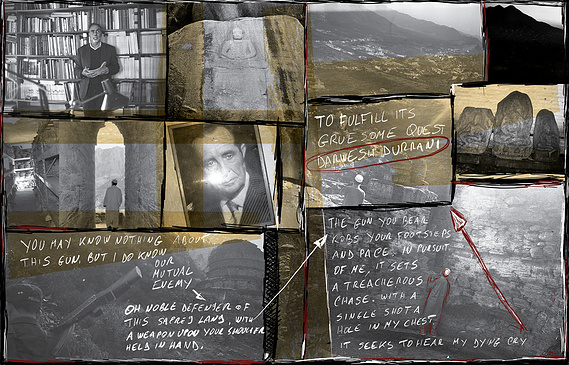 TO FULFILL ITS
GRUESOME QUEST
DARWESH DURRANI
YOU MAY KNOW NOTHING ABOUT
THIS GUN, BUT I DO KNOW
OUR
MUTUAL
ENEMY
OH NOBLE DEFENDER OF
THIS SACRED LAND, WITH
A WEAPON UPON YOUR SHOULDER
HELD IN HAND.
THE GUN YOU BEAR
ROBS YOUR FOOTSTEPS
AND PACE. IN PURSUIT
OF ME, IT SETS
A TREACHEROUS
CHASE. WITH A
SINGLE SHOT A
HOLE IN MY CHEST
IT SEEKS TO HEAR MY DYING CRY